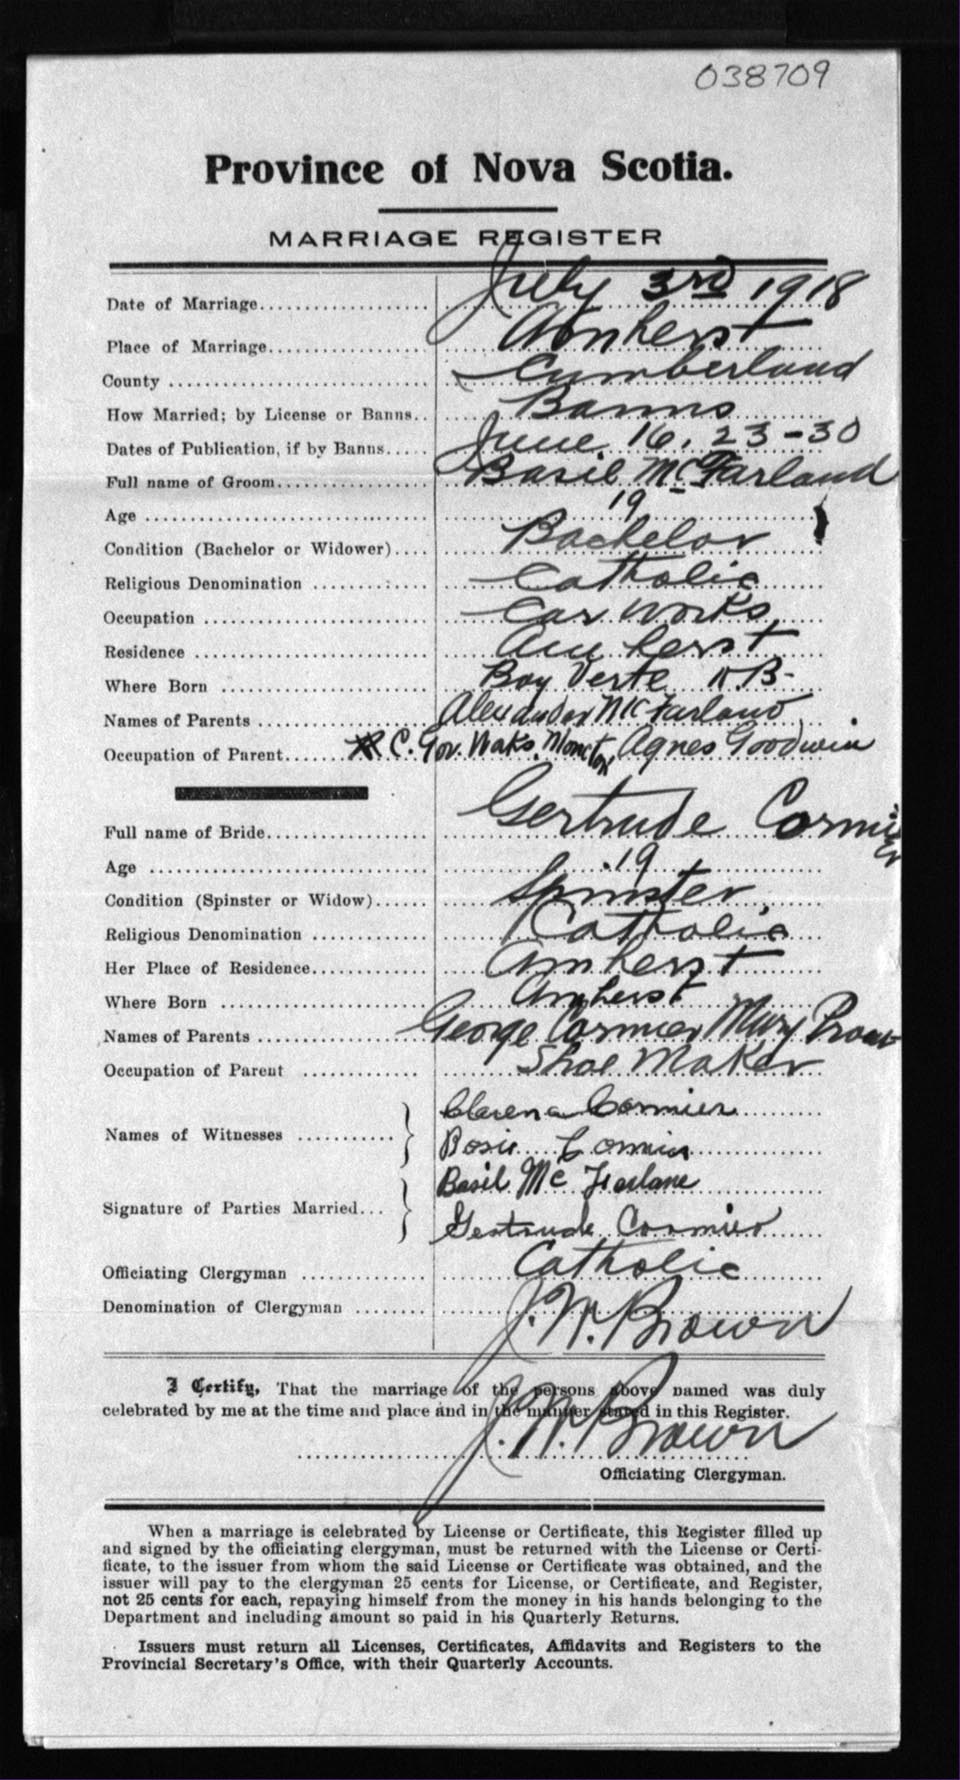 038709
Province of Nova Scotia.
MARRIAGE REGISTER
Date of Marriage........ July 3rd 1918
Place of Marriage........ Amherst
County ........ Cumberland
How Married; by License or Banns.. Banns
Dates of Publication, if by Banns..... June 16, 23-30
Full name of Groom........ Basil McFarland
Age ........ 19
Condition (Bachelor or Widower).... Bachelor
Religious Denomination ........ Catholic
Occupation ........ Car Works
Residence ........ Amherst
Where Born ........ Bay Verte N B-
Names of Parents ........ Alexander McFarland,
Occupation of Parent...... C. Gov. Waks. Moncton Agnes Goodwin
Full name of Bride........ Gertrude Cormier
Age ........ 19
Condition (Spinster or Widow)...... Spinster
Religious Denomination ........ Catholic
Her Place of Residence........ Amherst
Where Born ........ Amherst
Names of Parents ........ George Cormier Mary
Occupation of Parent ........ Shoe Maker
Names of Witnesses ........ } Clarena Cormier
Rosie Cormier
Signature of Parties Married... } Basil McFarlane
Gertrude Cormier
Officiating Clergyman ........ Catholic
Denomination of Clergyman ........ J. W. Brown
I Certify, That the marriage of the persons above named was duly
celebrated by me at the time and place and in the manner stated in this Register.
J. W. Brown
Officiating Clergyman.
When a marriage is celebrated by License or Certificate, this Register filled up
and signed by the officiating clergyman, must be returned with the License or Certi-
ficate, to the issuer from whom the said License or Certificate was obtained, and the
issuer will pay to the clergyman 25 cents for License, or Certificate, and Register,
not 25 cents for each, repaying himself from the money in his hands belonging to the
Department and including amount so paid in his Quarterly Returns.
Issuers must return all Licenses, Certificates, Affidavits and Registers to the
Provincial Secretary's Office, with their Quarterly Accounts.